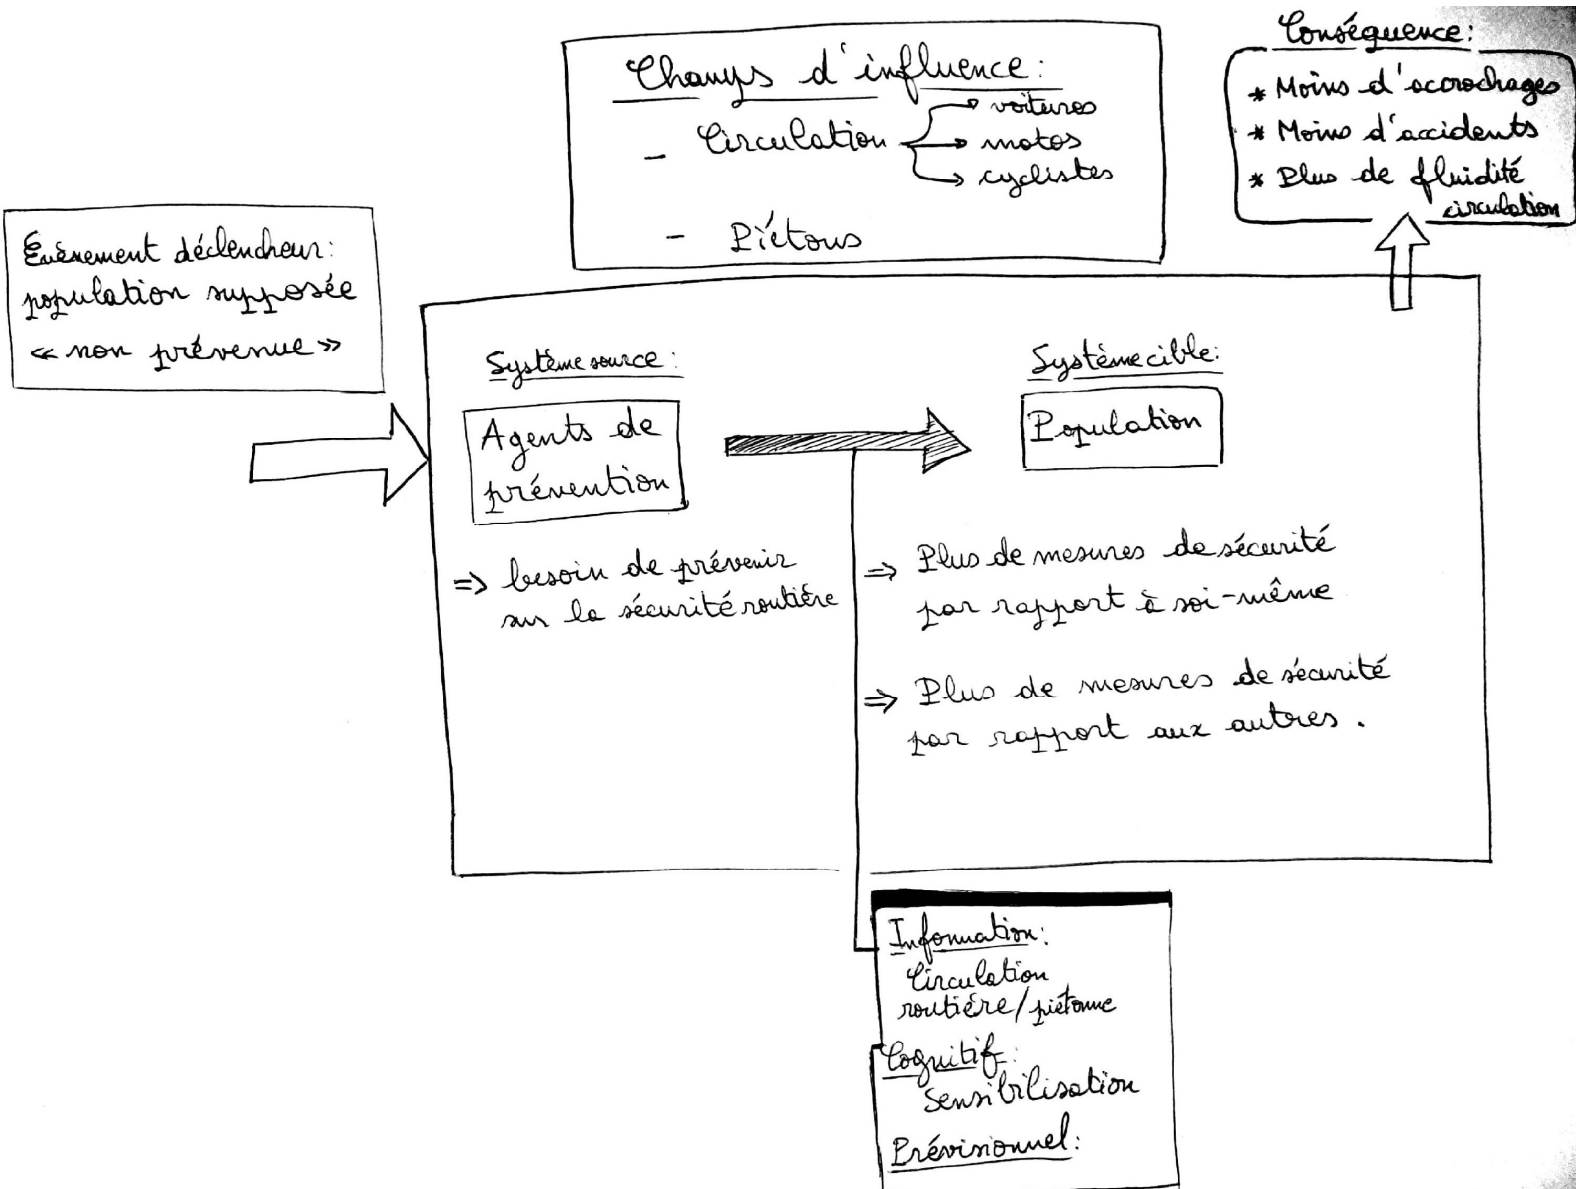 Champs d'influence:
- Circulation
voitures
motos
cyclistes
- Piétons
Conséquence:
* Moins d'accrochages
* Moins d'accidents
* Plus de fluidité
circulation
Évènement déclencheur:
population supposée
« non prévenue »
Système source:
Agents de
prévention
⇒ besoin de prévenir
sur la sécurité routière
Système cible:
Population
⇒ Plus de mesures de sécurité
par rapport à soi-même
⇒ Plus de mesures de sécurité
par rapport aux autres.
Information:
Circulation
routière/piétonne
Cognitif:
Sensibilisation
Prévisionnel: